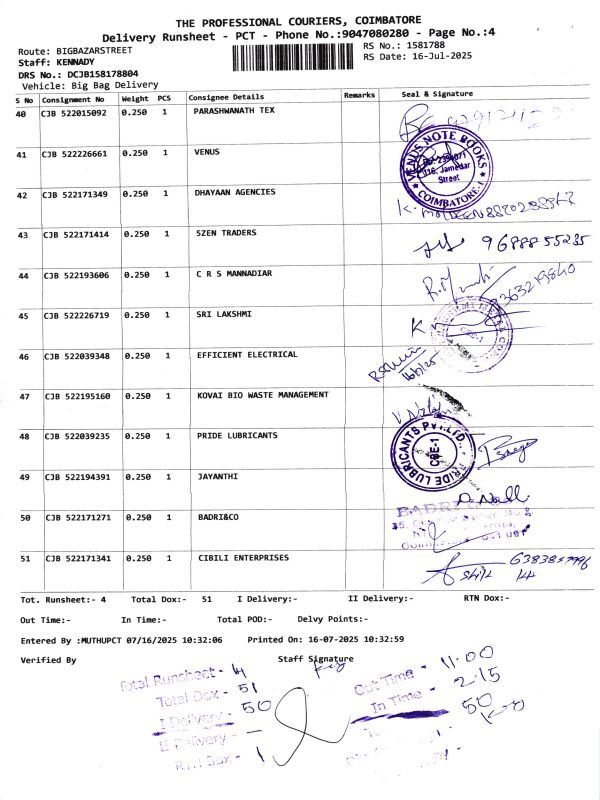 THE PROFESSIONAL COURIERS, COIMBATORE
Delivery Runsheet - PCT - Phone No.:9047080280 - Page No.:4
Route: BIGBAZARSTREET
RS No.: 1581788
Staff: KENNADY
RS Date: 16-Jul-2025
DRS No.: DCJB158178804
Vehicle: Big Bag Delivery
S No Consignment No Weight PCS Consignee Details Remarks Seal & Signature
40 CJB 522015092 0.250 1 PARASHWANATH TEX
41 CJB 522226661 0.250 1 VENUS
VENUS NOTE BOOKS
116, Jamedar
Street
COIMBATORE-1
42 CJB 522171349 0.250 1 DHAYAAN AGENCIES
43 CJB 522171414 0.250 1 5ZEN TRADERS 9688855235
44 CJB 522193606 0.250 1 C R S MANNADIAR
9363219840
45 CJB 522226719 0.250 1 SRI LAKSHMI
CBE-1
46 CJB 522039348 0.250 1 EFFICIENT ELECTRICAL
47 CJB 522195160 0.250 1 KOVAI BIO WASTE MANAGEMENT
48 CJB 522039235 0.250 1 PRIDE LUBRICANTS
PRIDE LUBRICANTS PVT.LTD.
CBE-1
49 CJB 522194391 0.250 1 JAYANTHI
50 CJB 522171271 0.250 1 BADRI&CO
51 CJB 522171341 0.250 1 CIBILI ENTERPRISES
Tot. Runsheet:- 4 Total Dox:- 51 I Delivery:- II Delivery:- RTN Dox:-
Out Time:- In Time:- Total POD:- Delvy Points:-
Entered By :MUTHUPCT 07/16/2025 10:32:06 Printed On: 16-07-2025 10:32:59
Verified By Staff Signature
Total Runsheet - 4
Total Dox - 51
I Delivery - 50
II Delivery -
RTN Dox - 1
Out Time - 11.00
In Time - 2.15
50